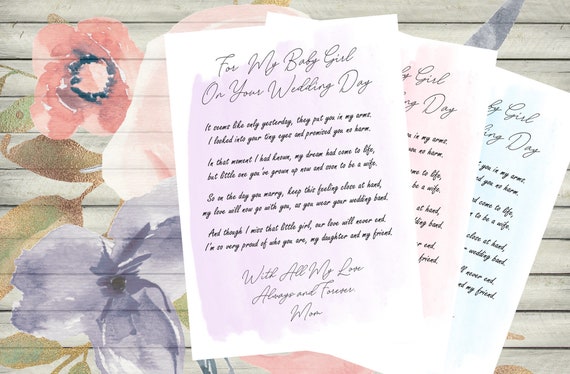 For My Baby Girl
On Your Wedding Day
It seems like only yesterday, they put you in my arms.
I looked into your tiny eyes and promised you no harm.
In that moment I had known, my dream had come to life,
but little one you've grown up now and soon to be a wife.
So on the day you marry, keep this feeling close at hand,
my love will now go with you, as you wear your wedding band.
And though I miss that little girl, our love will never end.
I'm so very proud of who you are, my daughter and my friend.
With All My Love
Always and Forever
Mom
Baby Girl
Wedding Day
put you in my arms.
promised you no harm.
had come to life,
soon to be a wife.
close at hand,
wedding band.
will never end.
and my friend.
Girl
Day
in my arms.
you no harm.
come to life,
to be a wife.
at hand,
wedding band.
never end.
my friend.